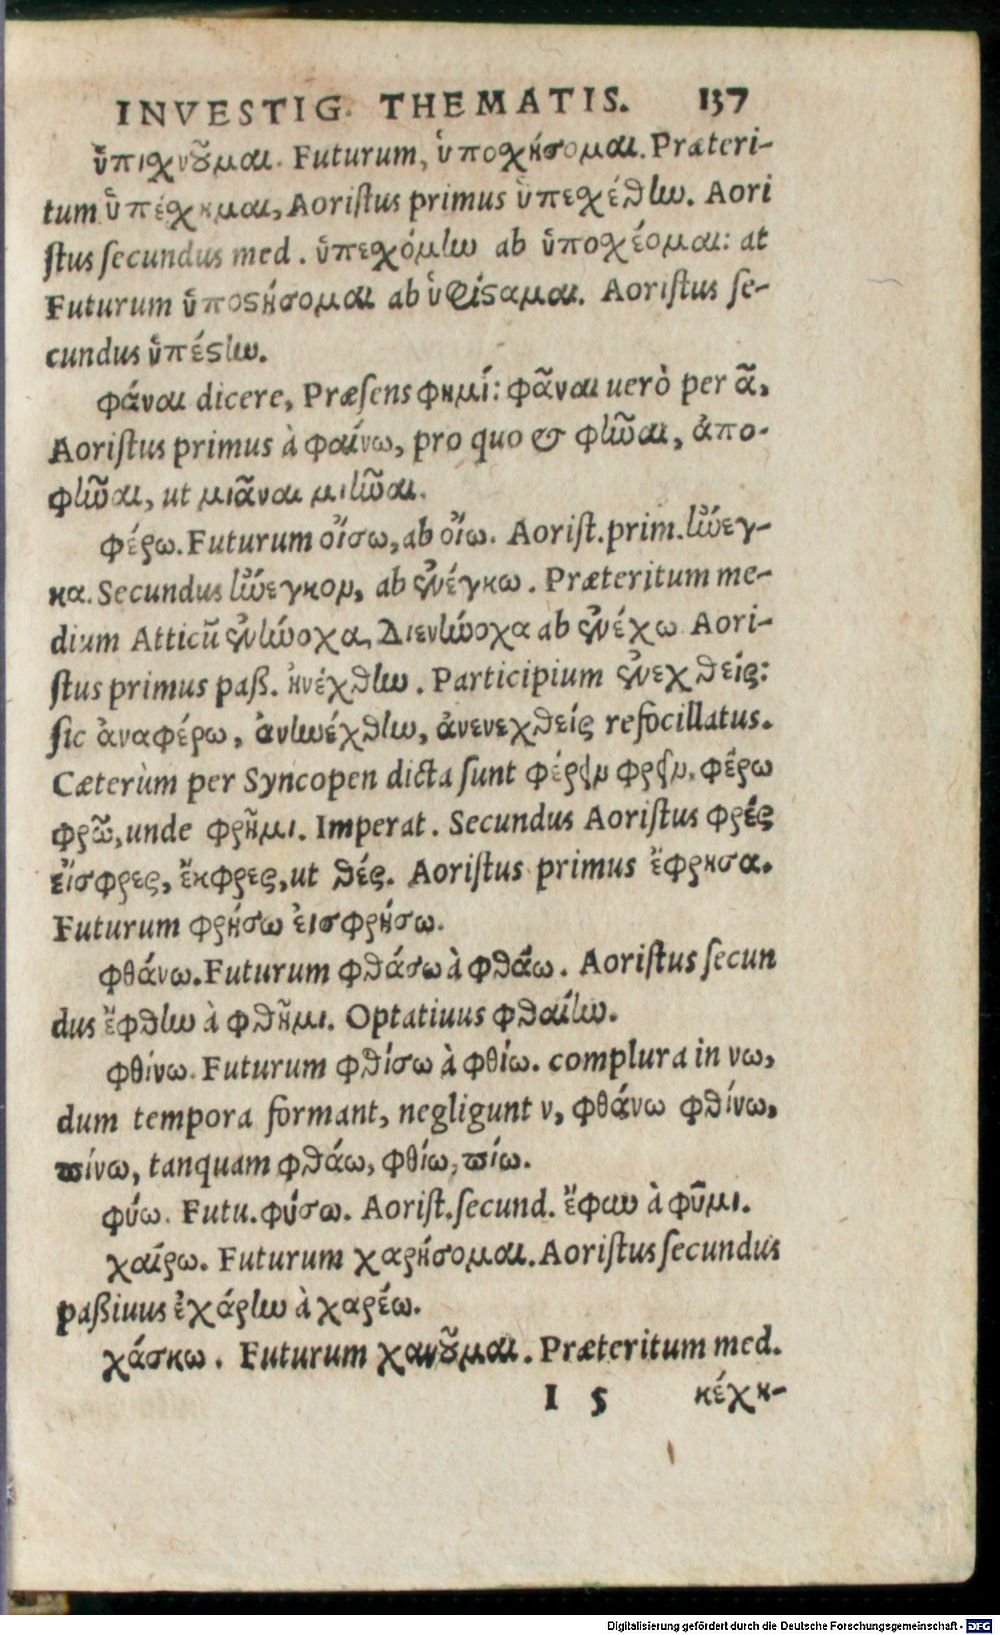 INVESTIG. THEMATIS. 137
ὑπιχνοῦμαι. Futurum, ὑποχήσομαι. Præteri-
tum ὑπέχημαι, Aoristus primus ὑπεχέθην. Aori
stus secundus med. ὑπεχόμην ab ὑποχέομαι: at
Futurum ὑποστήσομαι ab ὑφίσταμαι. Aoristus se-
cundus ὑπέστην.
φάναι dicere, Præsens φημί: φᾶναι uerò per ᾶ,
Aoristus primus à φαίνω, pro quo & φῆναι, ἀπο-
φῆναι, ut μιᾶναι μιῆναι.
φέρω. Futurum οἴσω, ab οἴω. Aorist. prim. ἤνεγ-
κα. Secundus ἤνεγκον, ab ἐνέγκω. Præteritum me-
dium Atticũ ἐνήνοχα, Διενήνοχα ab ἐνέχω. Aori-
stus primus paß. ἠνέχθην. Participium ἐνεχθείς:
sic ἀναφέρω, ἀνηνέχθην, ἀνενεχθείς refocillatus.
Cæterùm per Syncopen dicta sunt φέρειν φρεῖν, φέρω
φρῶ, unde φρῆμι. Imperat. Secundus Aoristus φρές
εἴσφρες, ἔκφρες, ut θές. Aoristus primus ἔφρησα.
Futurum φρήσω εἰσφρήσω.
φθάνω. Futurum φθάσω à φθάω. Aoristus secun
dus ἔφθην à φθῆμι. Optatiuus φθαίην.
φθίνω. Futurum φθίσω à φθίω. complura in νω,
dum tempora formant, negligunt ν, φθάνω φθίνω,
πίνω, tanquam φθάω, φθίω, πίω.
φύω. Futu. φύσω. Aorist. secund. ἔφυν à φῦμι.
χαίρω. Futurum χαρήσομαι. Aoristus secundus
paßiuus ἐχάρην à χαρέω.
χάσκω. Futurum χανοῦμαι. Præteritum med.
I 5 κέχη-
Digitalisierung gefördert durch die Deutsche Forschungsgemeinschaft - DFG